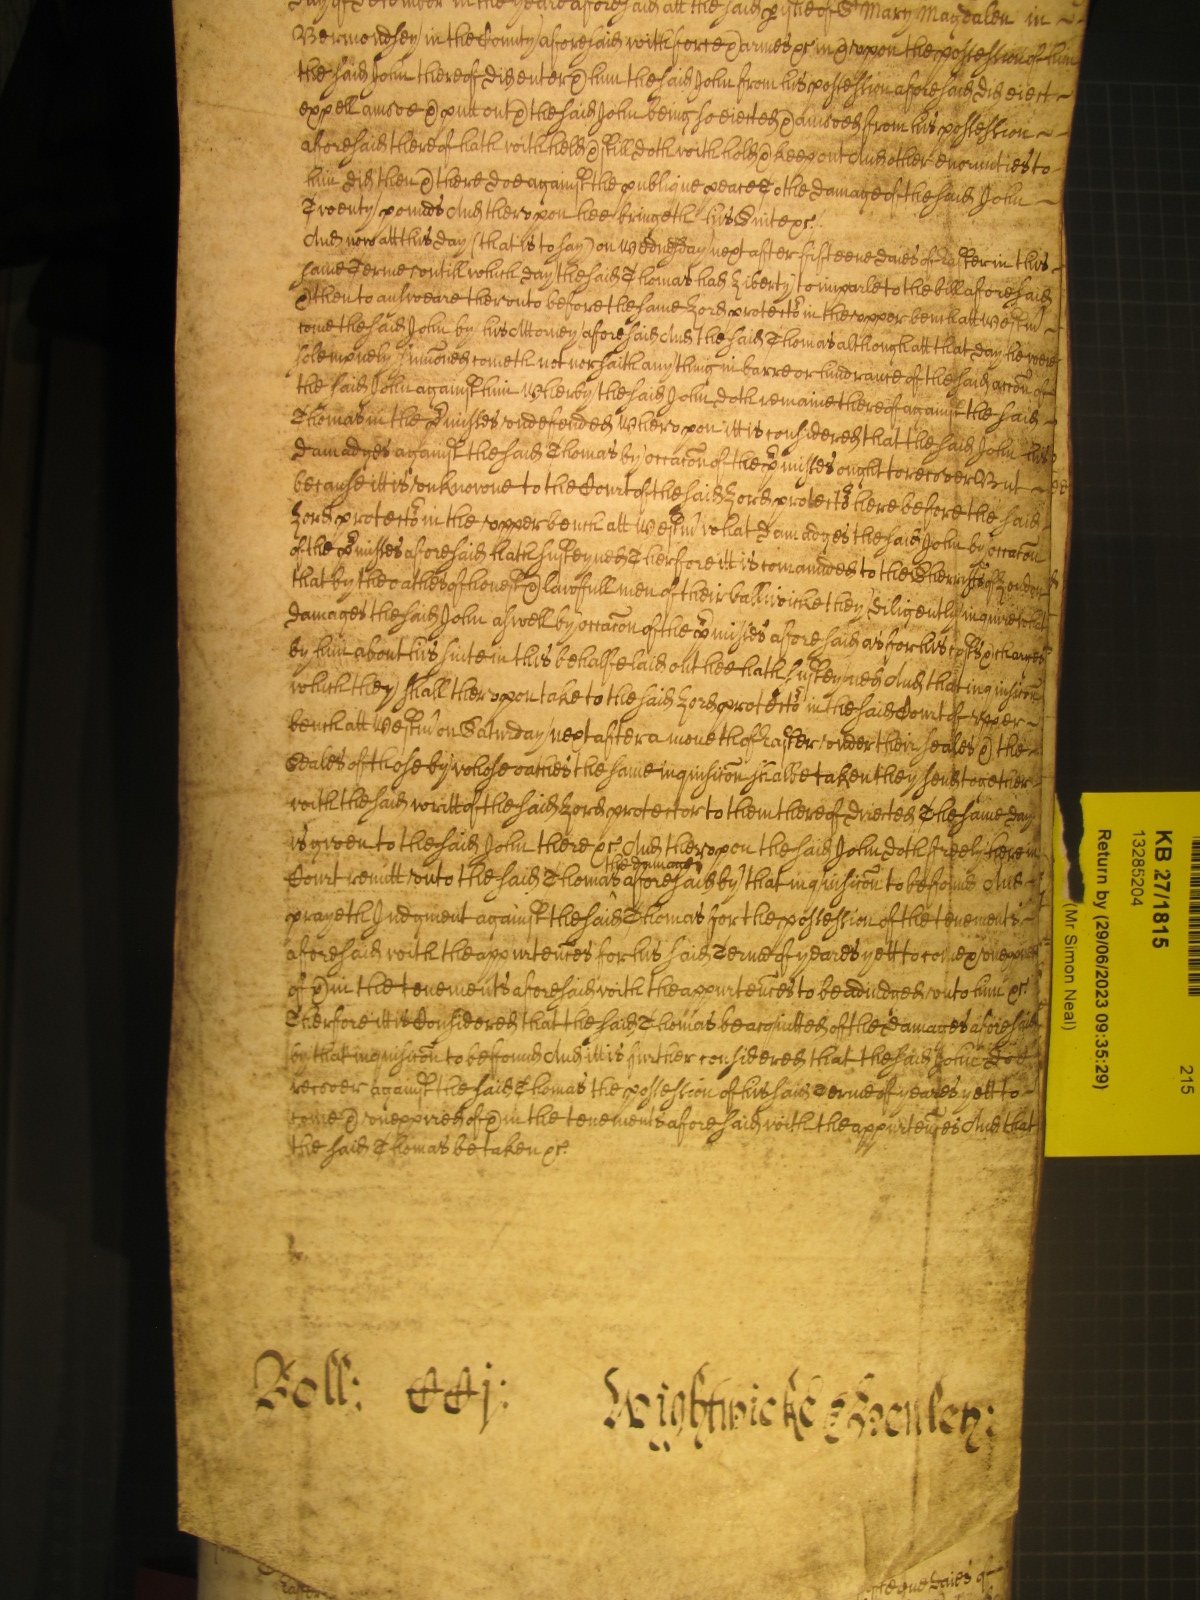 day of December in the yeare aforesaid att the said p'ishe of St Mary Magdalen in
Bermondsey in the County aforesaid with force & armes &c in & vpon the possession of him
the said John thereof did enter & him the said John from his possession aforesaid did eiect
expell amove & putt out & the said John being so eiected & amoved from his possession
aforesaid thereof hath withheld & still doth withhold & keep out And other enormities to
him did then & there doe against the publique peace To the damage of the said John
Twenty pounds And thervpon hee bringeth his Suite &c.
And now att this day (that is to say) on Wednesday next after fifteene daies of Easter in this
same Terme vntill which day the said Thomas had Liberty to imparle to the bill aforesaid
& then to answeare thervnto before the same Lord protector in the vpper bench att Westm'
come the said John by his Attorney aforesaid And the said Thomas although att that day he were
solempnely summoned cometh not nor saith any thing in barre or hindrance of the said acc'on of
the said John against him Wherby the said John doth remaine thereof against the said
Thomas in the p'misses vndefended Whervpon itt is considered that the said John his
damadges against the said Thomas by occac'on of the p'misses ought to recover But
because itt is vnknowne to the Court of the said Lord protector here before the said
Lord protector in the vpper bench att Westm' what damadges the said John by occac'on
of the p'misses aforesaid hath susteyned Therfore itt is comaunded to the Sherriffs of London
that by the oathes of honest & lawfull men of their balliwicke they diligently inquire what
damages the said John aswell by occac'on of the p'misses aforesaid as for his costs & charges
by him about his suite in this behalfe laid out hee hath susteyned And that inquisic'on
which they shall thervpon take to the said Lord protector in the said Court of vpper
bench att Westm' on Saturday next after a moneth of Easter vnder their seales & the
Seales of those by whose oathes the same inquisic'on shalbe taken they send together
with the said writt of the said Lord protector to them thereof directed The same day
is given to the said John there &c. And thervpon the said John doth freely here in
the damages
Court remitt vnto the said Thomas aforesaid by that inquisic'on to be found And
prayeth Judgment against the said Thomas for the possession of the tenements
aforesaid with the appurten'ces for his said Terme of yeares yett to come & vnexpired
of & in the tenements aforesaid with the appurten'ces to be adiudged vnto him &c.
Therfore itt is Considered that the said Thomas be acquitted of the damages aforesaid
by that inquisic'on to be found And itt is further considered that the said John doe
recover against the said Thomas the possession of his said Terme of yeares yett to
come & vnexpired of & in the tenements aforesaid with the appurten'ces And that
the said Thomas be taken &c.
Roll: CCj: Wightwicke & Henley:
KB 27/1815
215
13285204
Return by (29/06/2023 09:35:29)
(Mr Simon Neal)